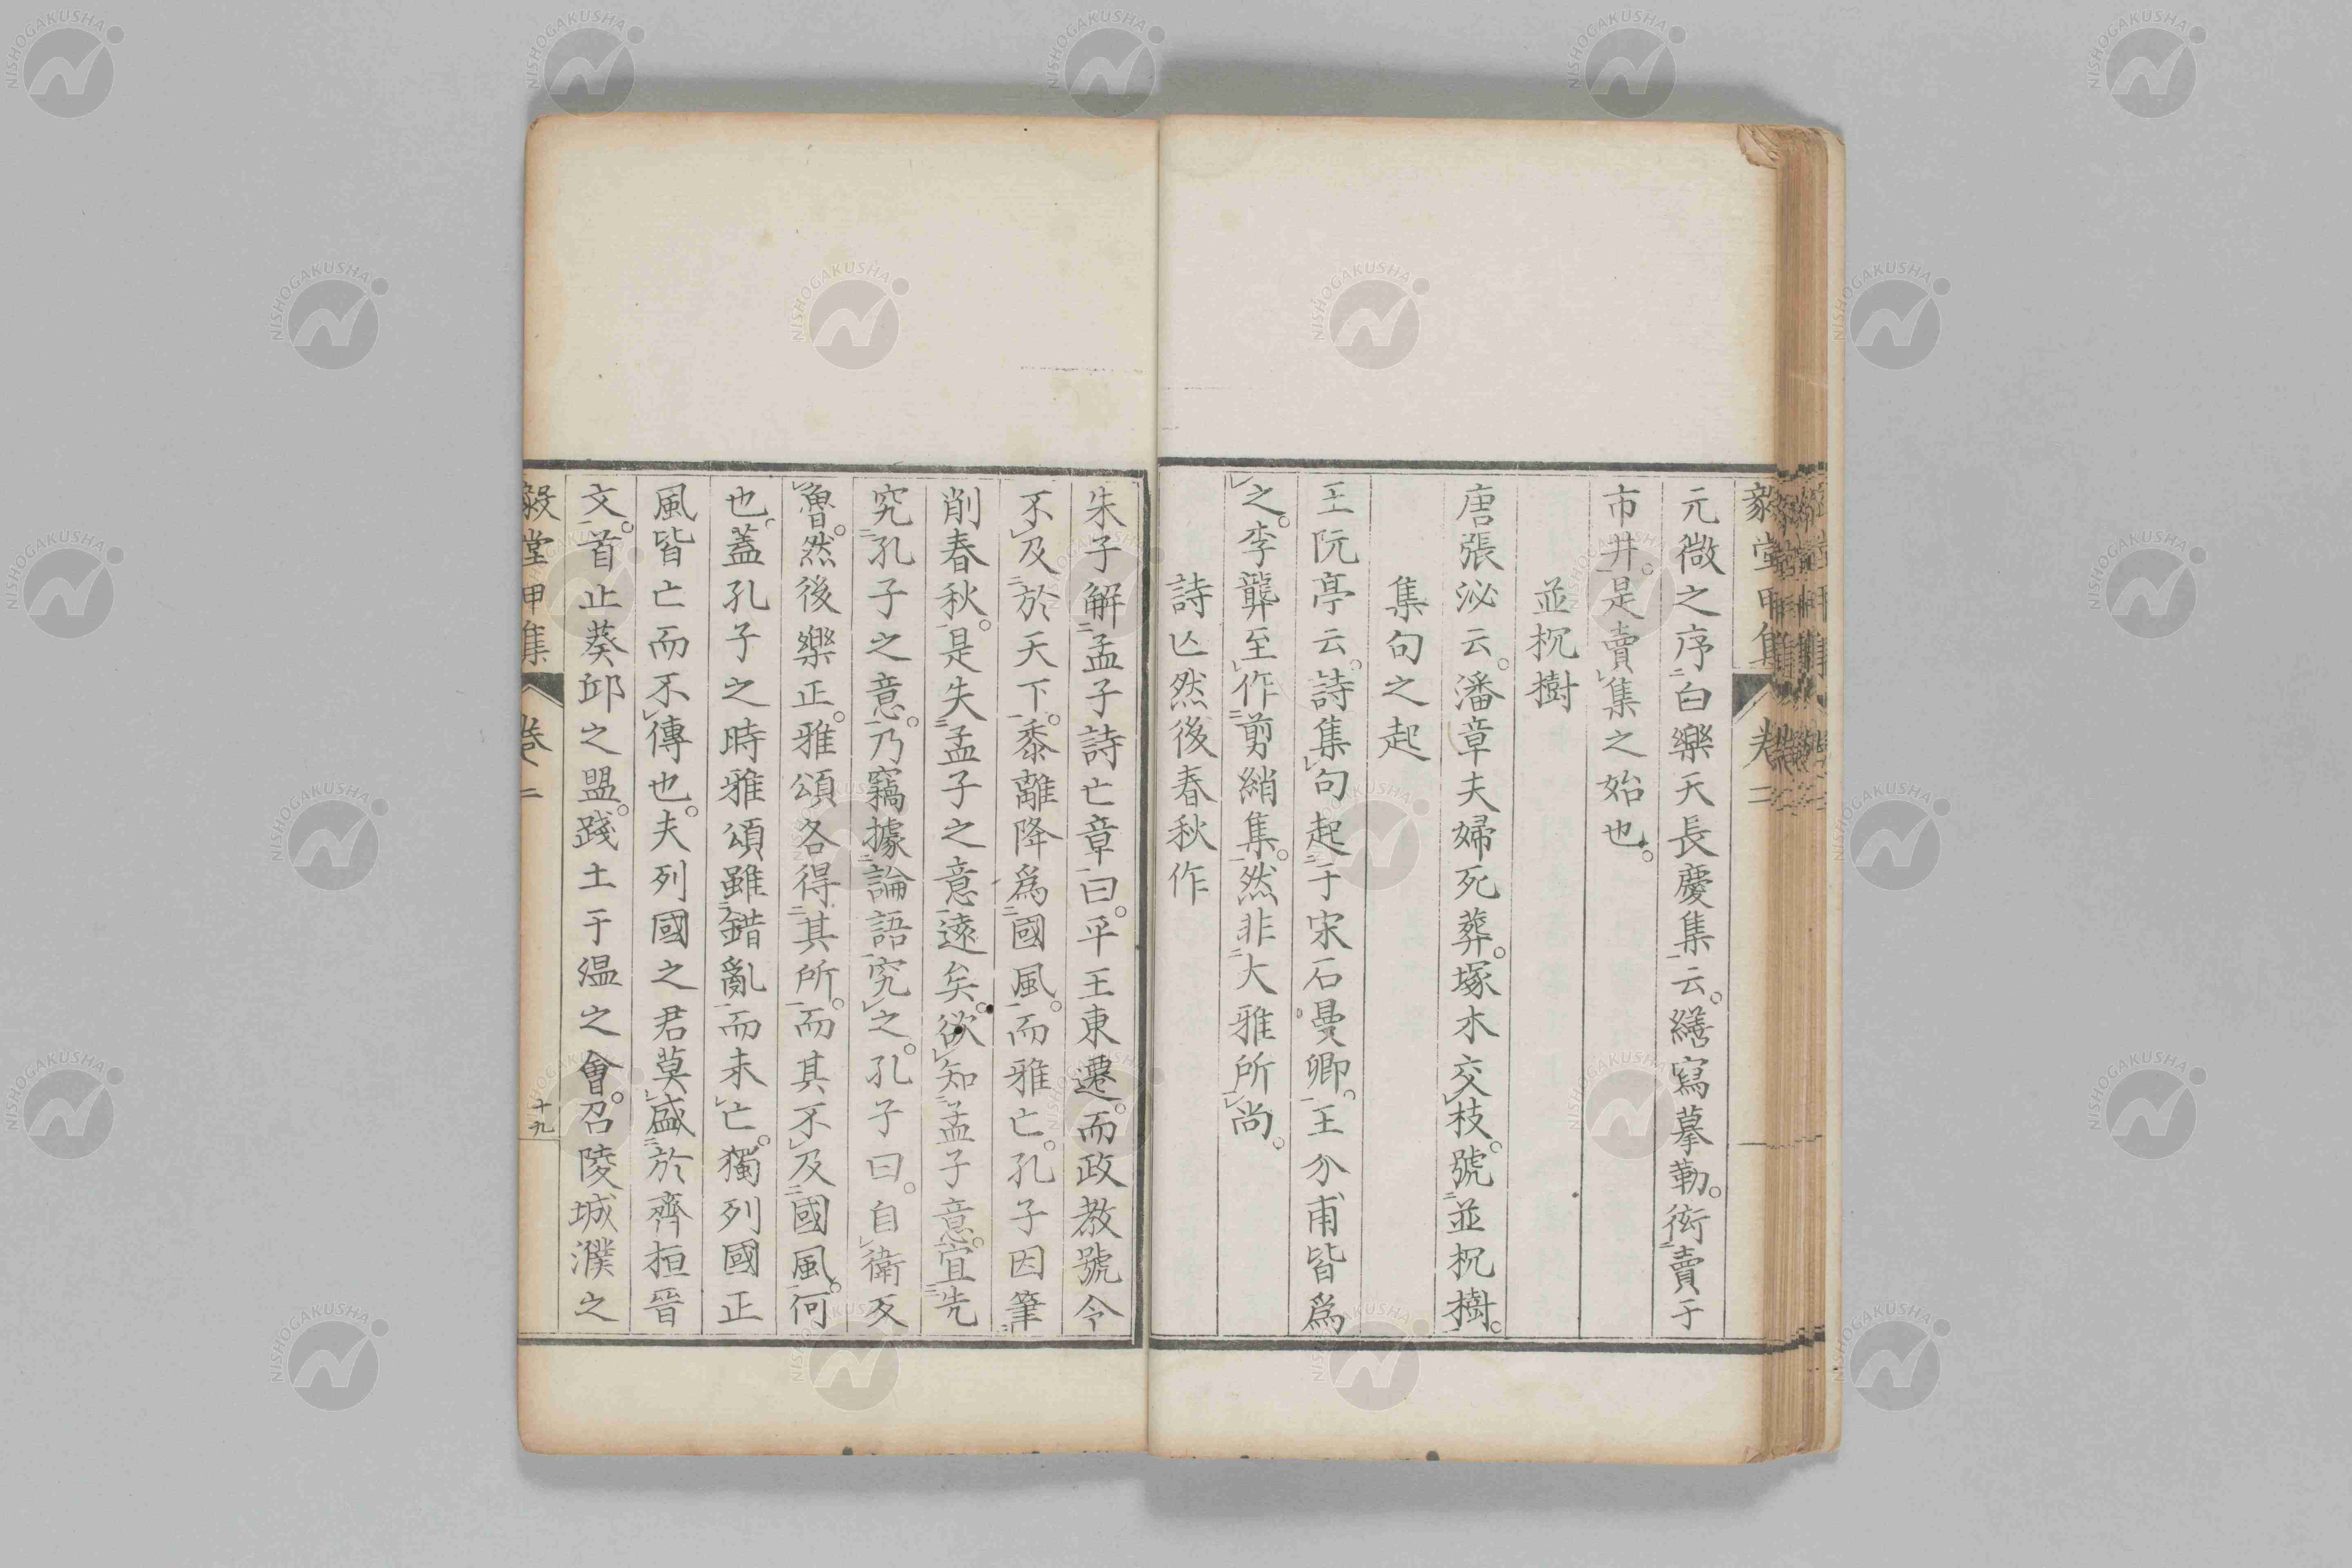 元微之序白樂天長慶集云。繕寫摹勒。衒賣于
市井。是賣集之始也。
並枕樹
唐張泌云。潘章夫婦死葬。塚木交枝。號並枕樹。
集句之起
王阮亭云。詩集句起于宋石曼卿。王介甫皆爲
之。李龏至作剪綃集。然非大雅所尚。
詩亾然後春秋作
朱子解孟子詩亡章曰。平王東遷。而政教號令
不及於天下。黍離降爲國風。而雅亡。孔子因筆
削春秋。是失孟子之意遠矣。欲知孟子意。宜先
究孔子之意。乃竊據論語究之。孔子曰。自衛反
魯。然後樂正。雅頌各得其所。而其不及國風。何
也。蓋孔子之時雅頌雖錯亂而未亡。獨列國正
風皆亡而不傳也。夫列國之君莫盛於齊桓晉
文。首止葵邱之盟。踐土于溫之會。召陵城濮之
毅堂甲集 卷二 十九
NISHOGAKUSHA